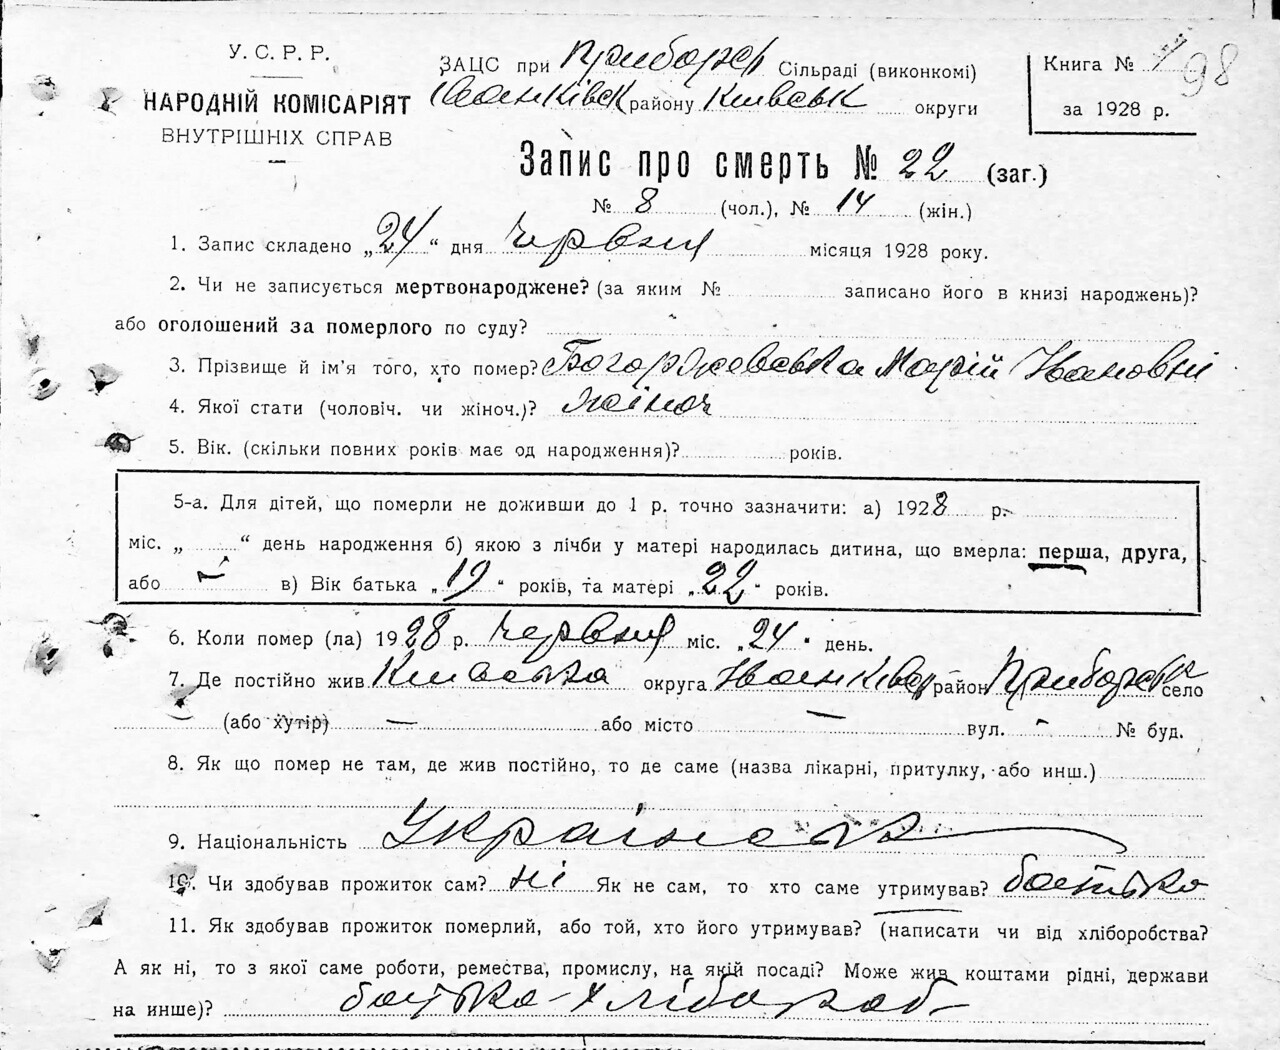 У.С.Р.Р.
НАРОДНІЙ КОМІСАРІЯТ
ВНУТРІШНІХ СПРАВ
ЗАЦС при Приборськ Сільраді (виконкомі)
Іванківськ району Київськ округи
Книга № 98
за 1928 р.
Запис про смерть № 22 (заг.)
№ 8 (чол.), № 14 (жін.)
1. Запис складено „24“ дня Червня місяця 1928 року.
2. Чи не записується мертвонароджене? (за яким № записано його в книзі народжень)?
або оголошений за померлого по суду?
3. Прізвище й ім'я того, хто помер? Марій Івановні
4. Якої стати (чоловіч. чи жіноч.)? жіноч
5. Вік. (скільки повних років має од народження)? років.
5-а. Для дітей, що померли не доживши до 1 р. точно зазначити: а) 1928 р.
міс. „ “ день народження б) якою з лічби у матері народилась дитина, що вмерла: перша, друга,
або — в) Вік батька „19“ років, та матері „22“ років.
6. Коли помер (ла) 1928 р. Червня міс. „24“ день.
7. Де постійно жив Київська округа Іванківськ район Приборськ село
(або хутір) — або місто — вул. - № буд.
8. Як що помер не там, де жив постійно, то де саме (назва лікарні, притулку, або инш.)
9. Національність Українка
10. Чи здобував прожиток сам? ні Як не сам, то хто саме утримував? батько
11. Як здобував прожиток померлий, або той, хто його утримував? (написати чи від хліборобства?
А як ні, то з якої саме роботи, ремества, промислу, на якій посаді? Може жив коштами рідні, держави
на инше)? батько - хлібороб